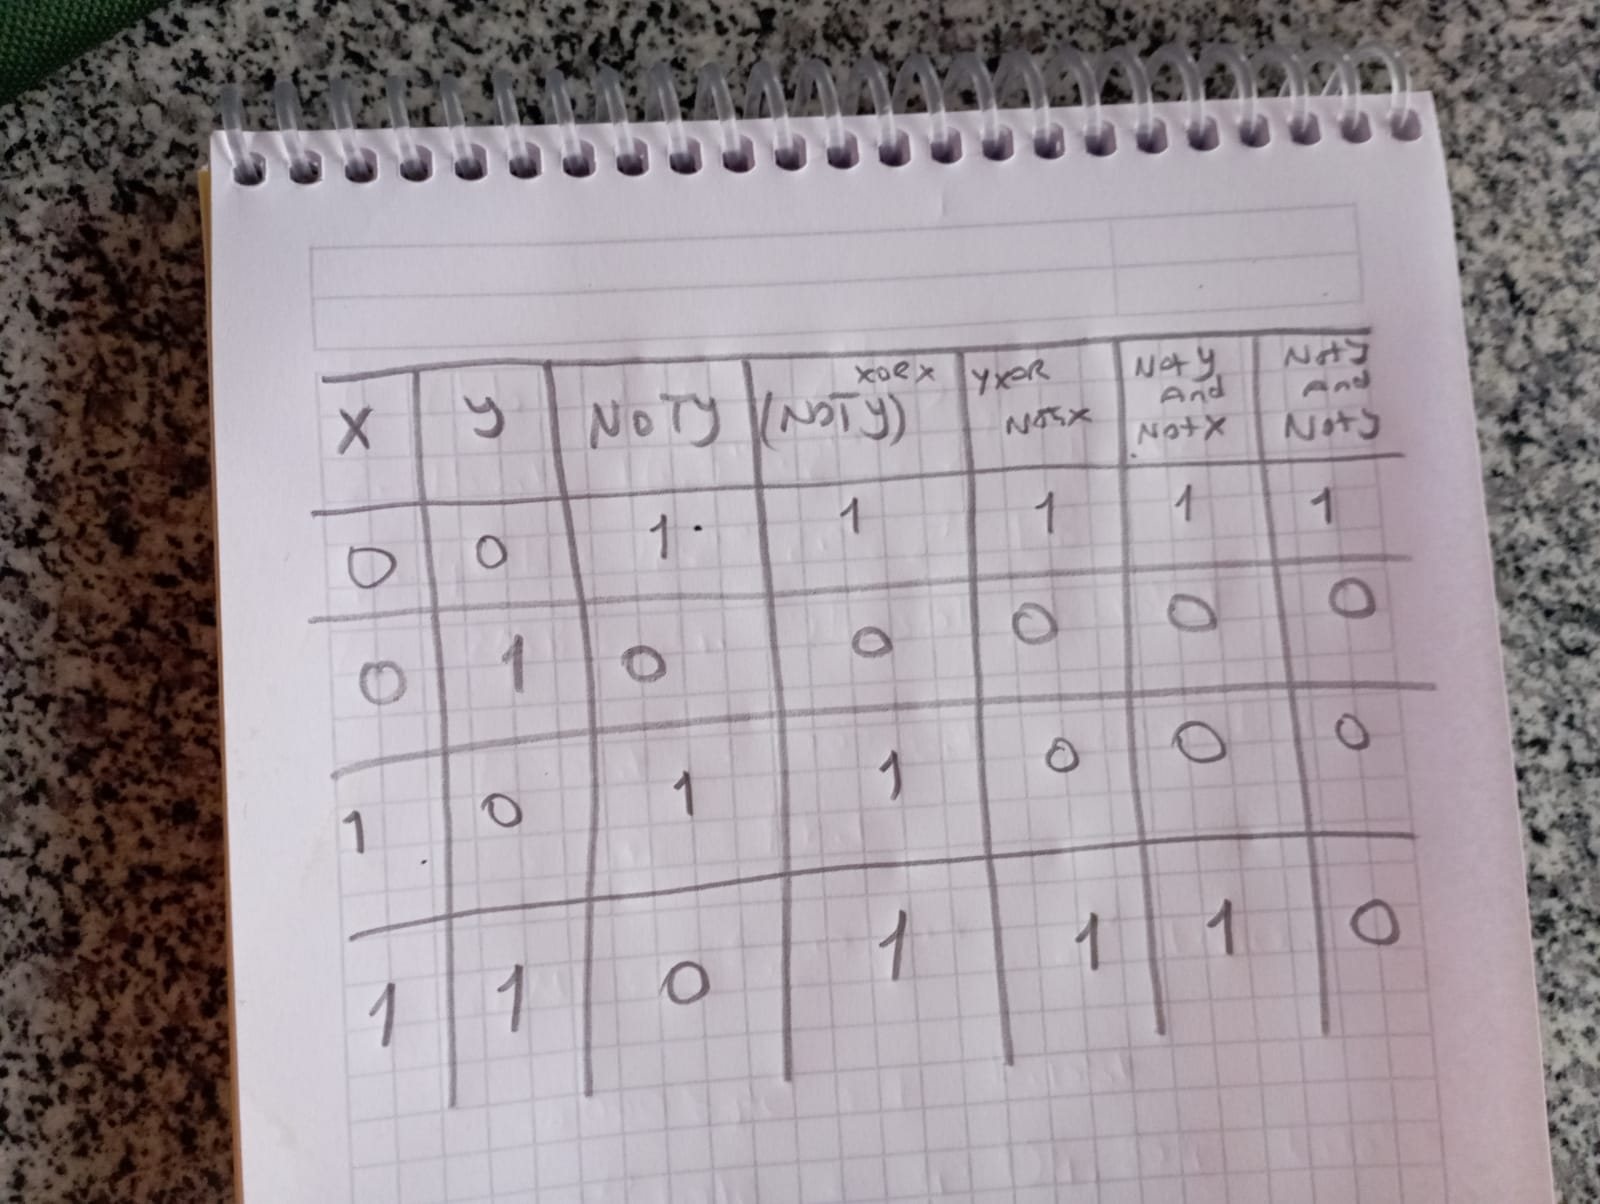 X y NOTy XORX (NOTy) YXOR NOTX Not y And Not X Not y and Not y
0 0 1 1 1 1 1
0 1 0 0 0 0 0
1 0 1 1 0 0 0
1 1 0 1 1 1 0